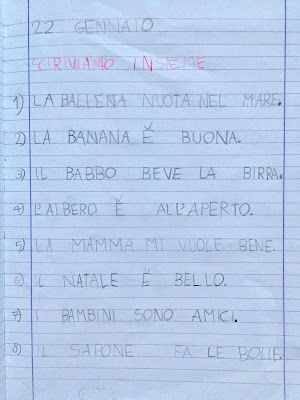 22 GENNAIO
SCRIVIAMO INSIEME
1) LA BALLENA NUOTA NEL MARE.
2) LA BANANA È BUONA.
3) IL BABBO BEVE LA BIRRA.
4) L'ALBERO È ALL'APERTO.
5) LA MAMMA MI VUOLE BENE.
6) IL NATALE È BELLO.
7) I BAMBINI SONO AMICI.
8) IL SAPONE FA LE BOLLE.